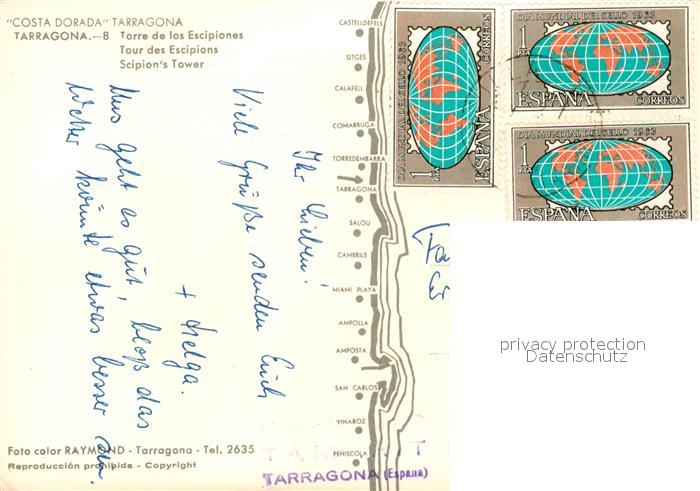 "COSTA DORADA" TARRAGONA
TARRAGONA.—8 Torre de los Escipiones
Tour des Escipions
Scipion's Tower
Ihr Lieben!
Viele Grüße senden Euch
+ Helga.
Uns geht es gut, bloß das
Wetter könnte etwas besser sein.
CASTELLDEFELS
SITGES
CALAFELL
COMARRUGA
TORREDEMBARRA
TARRAGONA
SALOU
CAMBRILS
MIAMI PLAYA
AMPOLLA
AMPOSTA
SAN CARLOS
VINAROZ
PEÑISCOLA
DIA MUNDIAL DEL SELLO 1963
1 PTA
ESPAÑA
CORREOS
DIA MUNDIAL DEL SELLO 1963
1 PTA
ESPAÑA
CORREOS
DIA MUNDIAL DEL SELLO 1963
1 PTA
ESPAÑA
CORREOS
privacy protection
Datenschutz
Foto color RAYMOND - Tarragona - Tel. 2635
Reproducción prohibida - Copyright
TARRAGONA (España)